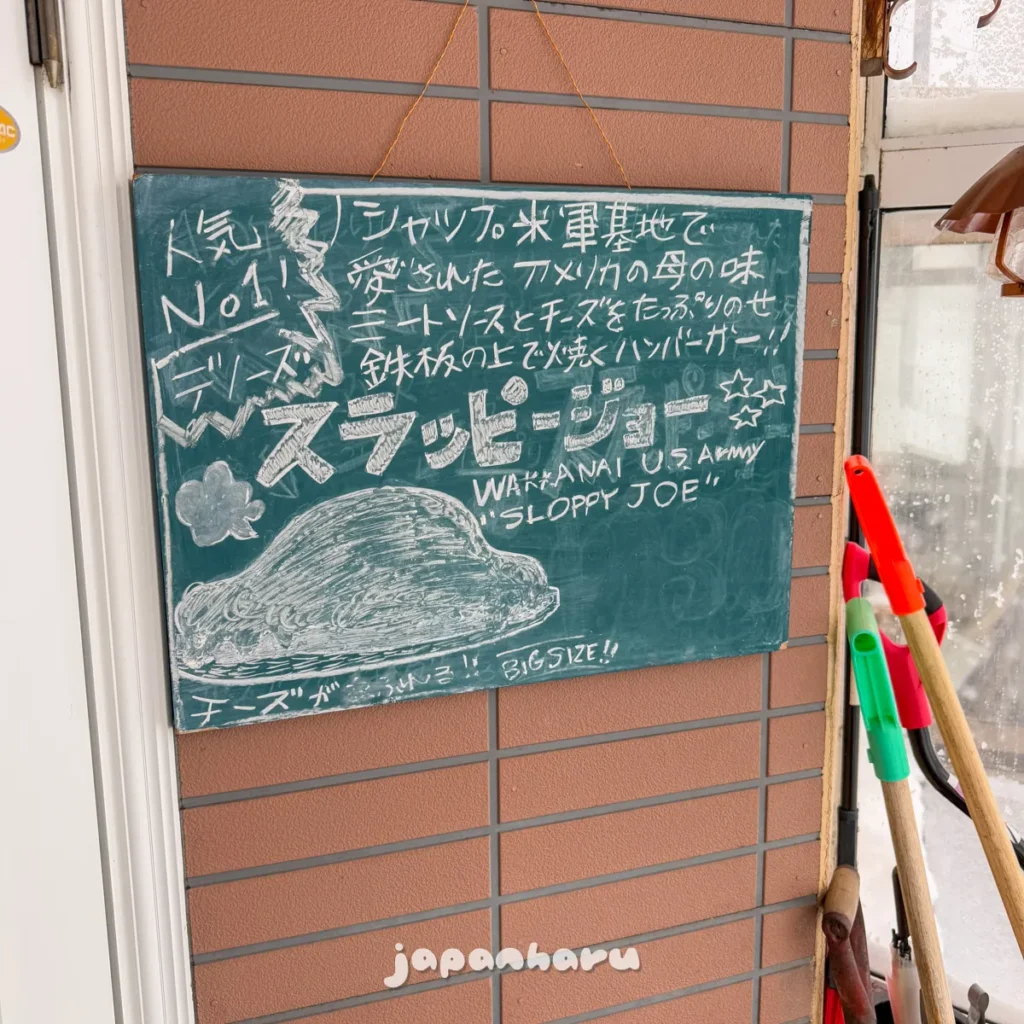 人気
No1!
デリーズ
ノシャップ。米軍基地で
愛されたアメリカの母の味
ミートソースとチーズをたっぷりのせ
鉄板の上で焼くハンバーガー!!
スラッピージョー
WAKKANAI U.S Army
"SLOPPY JOE"
チーズが
BIG SIZE!!
japanharu